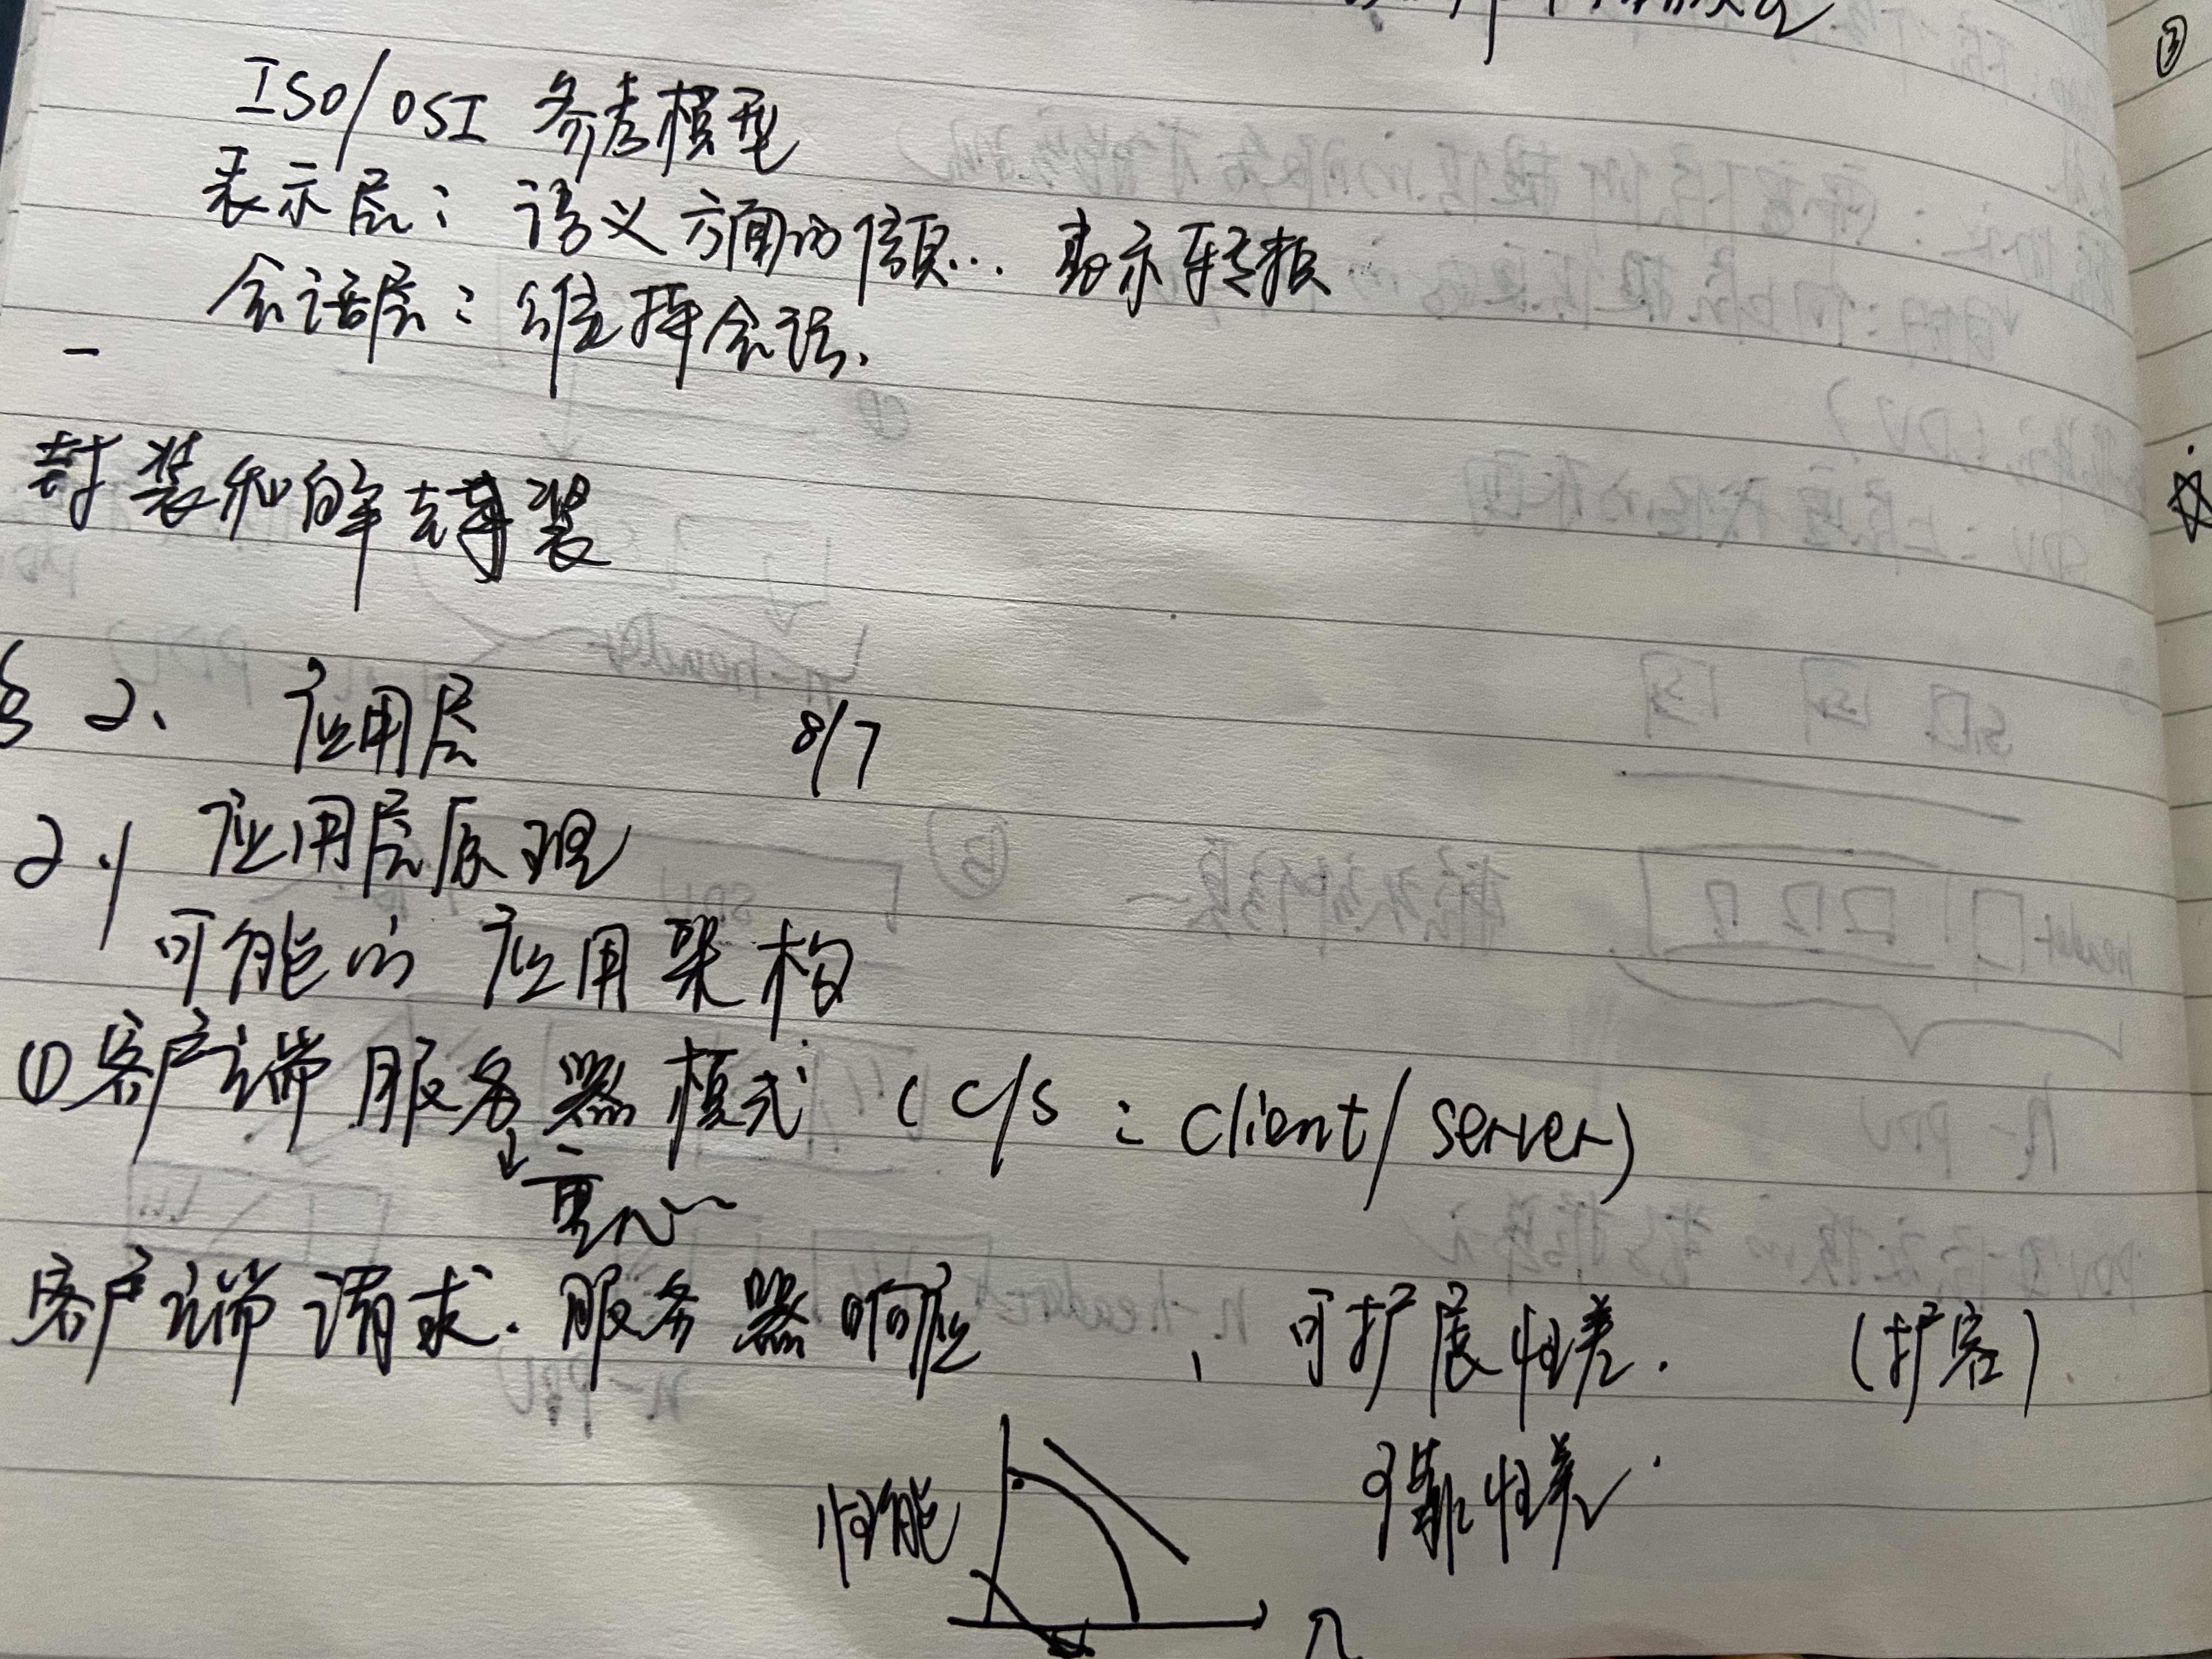 ISO/OSI 参考模型
表示层: 语义 方面的信息... 表示 转换
会话层: 维持会话.
封装和解封装
§2. 应用层 8/7
2.1 应用层原理
可能的 应用架构
① 客户端 服务器 模式 (C/S : Client/Server)
客户端请求. 服务器响应 、可扩展性差. (扩容)
性能 可靠性差.